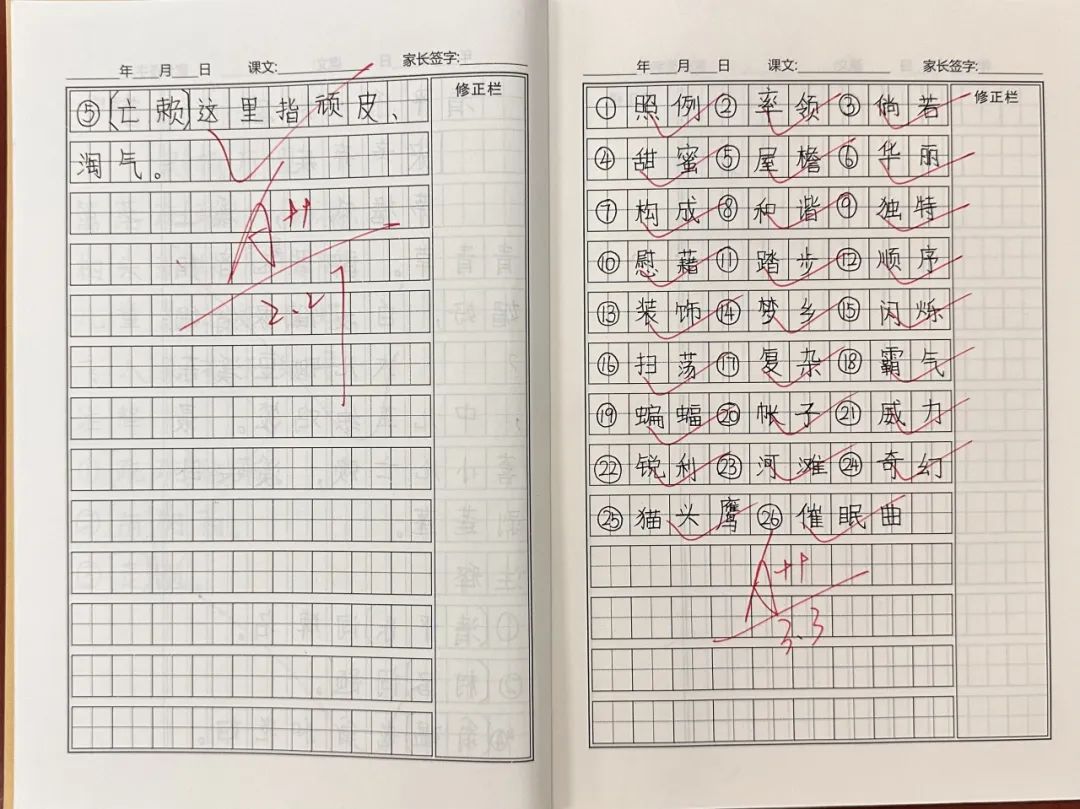 年 月 日 课文: 家长签字:
修正栏
⑤[亡赖]这里指顽皮、
淘气。
A++
2.27
年 月 日 课文: 家长签字:
修正栏
①照例②率领③倘若
④甜蜜⑤屋檐⑥华丽
⑦构成⑧和谐⑨独特
⑩慰藉⑪踏步⑫顺序
⑬装饰⑭梦乡⑮闪烁
⑯扫荡⑰复杂⑱霸气
⑲蝙蝠⑳帐子㉑威力
㉒锐利㉓河滩㉔奇幻
㉕猫头鹰㉖催眠曲
A++
3.3